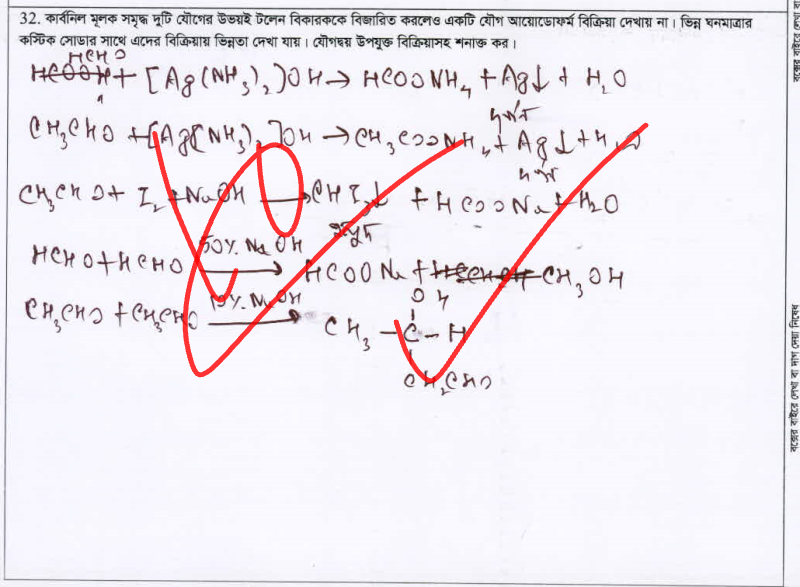 32. কার্বনিল মূলক সমৃদ্ধ দুটি যৌগের উভয়ই টলেন বিকারককে বিজারিত করলেও একটি যৌগ আয়োডোফর্ম বিক্রিয়া দেখায় না। ভিন্ন ঘনমাত্রার
কস্টিক সোডার সাথে এদের বিক্রিয়ায় ভিন্নতা দেখা যায়। যৌগদ্বয় উপযুক্ত বিক্রিয়াসহ শনাক্ত কর।
HCHO
+ [Ag(NH₃)₂]OH → HCOONH₄ + Ag↓ + H₂O
CH₃CHO + [Ag(NH₃)₂]OH → CH₃COONH₄ + Ag↓ + H₂O
CH₃CHO + I₂ + NaOH → CHI₃↓ + HCOONa + H₂O
হলুদ
HCHO + HCHO 50% NaOH → HCOONa + CH₃OH
CH₃CHO + CH₃CHO 10% NaOH → CH₃ – C – H
OH
CH₂CHO
বক্সের বাইরে লেখা বা দাগ দেয়া নিষেধ